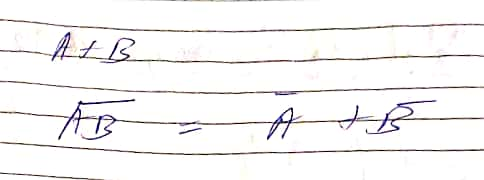 A + B
A̅B̅ = A̅ + B̅